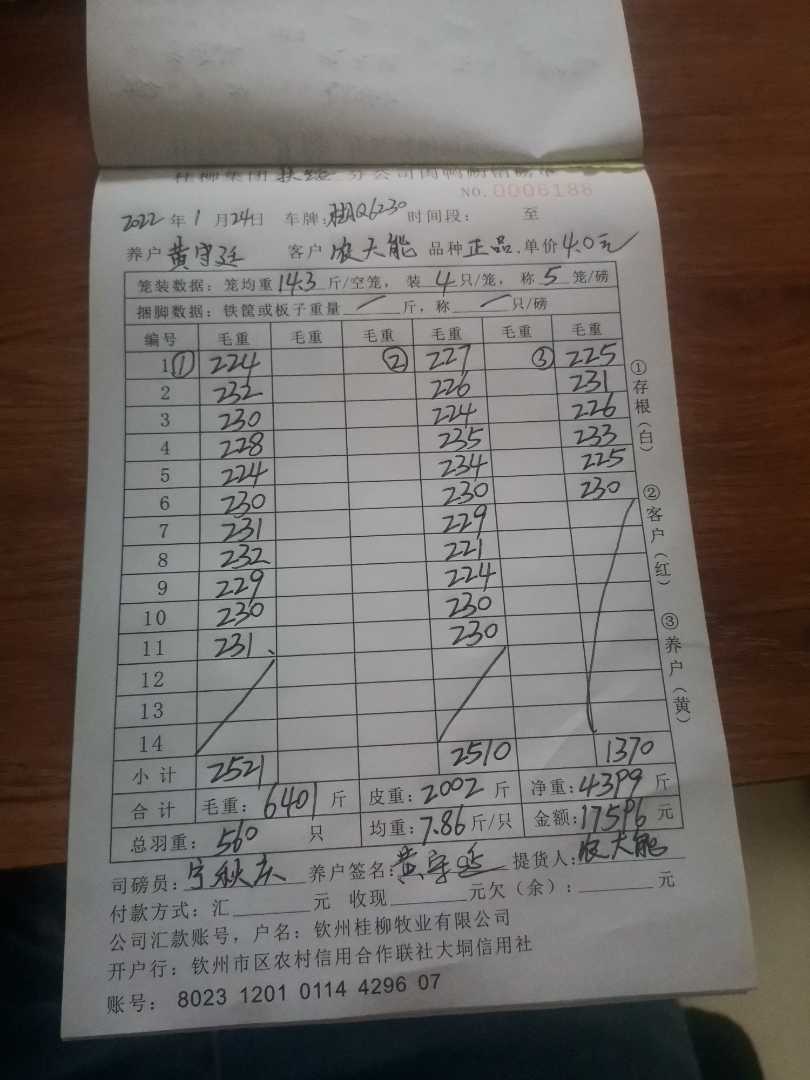 桂柳集团扶绥分公司肉鸭磅销磅条
NO.0006188
2022年1月24日 车牌:桂AQ6230 时间段: 至
养户黄守廷 客户农天能 品种正品.单价4.0元
笼装数据:笼均重14.3斤/空笼,装4只/笼,称5笼/磅
捆脚数据:铁筐或板子重量/斤,称/只/磅
编号 毛重 毛重 毛重 毛重 毛重 毛重
1 ① 224 ② 227 ③ 225
2 232 226 231
3 230 224 226
4 228 235 233
5 224 234 225
6 230 230 230
7 231 229
8 232 221
9 229 224
10 230 230
11 231 230
12
13
14
小计 2521 2510 1370
合计 毛重:6401斤 皮重:2002斤 净重:4399斤
总羽重:560只 均重:7.86斤/只 金额:17596元
司磅员:宁秋庆 养户签名:黄守廷 提货人:农天能
付款方式:汇 元 收现 元欠(余): 元
公司汇款账号,户名:钦州桂柳牧业有限公司
开户行:钦州市区农村信用合作联社大垌信用社
账号:8023 1201 0114 4296 07
①存根(白)
②客户(红)
③养户(黄)